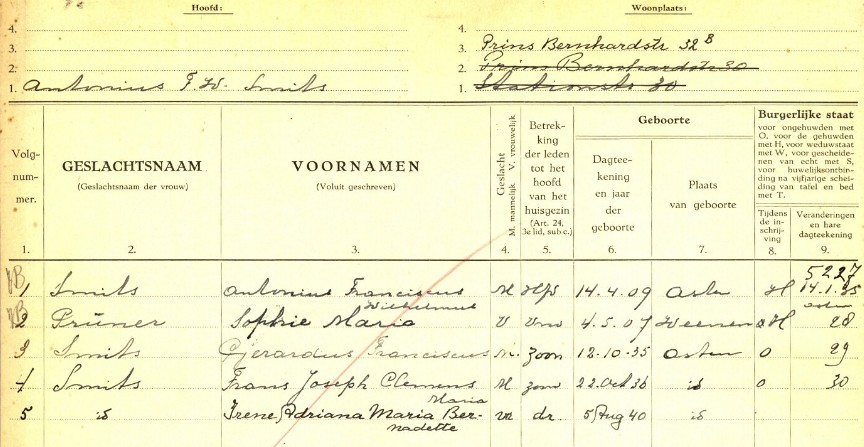 Hoofd:
Woonplaats:
4.
4.
3.
3. Prins Bernhardstr 32B
2.
2. Prins Bernhardstr 30
1. Antonius F W. Smits
1. Stationstr 30
Volg-
num-
mer.
GESLACHTSNAAM
(Geslachtsnaam der vrouw)
VOORNAMEN
(Voluit geschreven)
Geslacht
M. mannelijk V. vrouwelijk
Betrek-
king
der leden
tot het
hoofd
van het
huisgezin
(Art. 24,
3e lid, sub c.)
Geboorte
Dagtee-
kening
en jaar
der
geboorte
Plaats
van geboorte
Burgerlijke staat
voor ongehuwden met
O, voor de gehuwden
met H, voor weduwstaat
met W, voor gescheide-
nen van echt met S,
voor huwelijksontbin-
ding na vijfjarige schei-
ding van tafel en bed
met T.
Tijdens
de in-
schrij-
ving
Veranderingen
en hare
dagteekening
1. 2. 3. 4. 5. 6. 7. 8. 9.
5227
VB 1 Smits Antonius Franciscus M Hfd 14.4.09 Asten H 14.1.35
Wilhelmus Asten
VB 2 Prüner Sophie Maria V Vrw 4.5.07 Weenen H 28
3 Smits Gerardus Franciscus M. zoon 12-10-35 Asten O 29
4 Smits Frans Joseph Clemens M zoon 22 Oct 36 id O 30
Maria
5 id Irene, Adriana Maria Ber- dr. 5 Aug 40 id
nadette